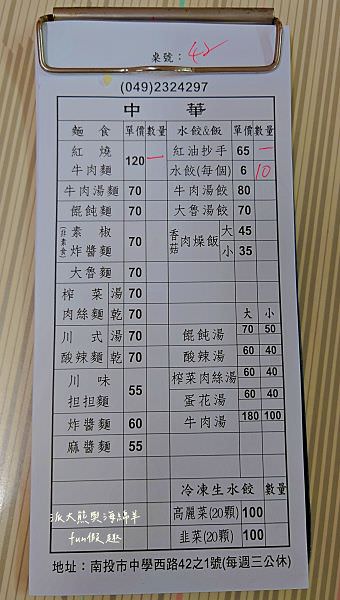 桌號: 42
(049)2324297
中華
麵食 單價 數量 水餃&飯 單價 數量
紅燒牛肉麵 120 一 紅油抄手 65 一
水餃(每個) 6 10
牛肉湯麵 70 牛肉湯餃 80
餛飩麵 70 大魯湯餃 70
(非素食)素椒炸醬麵 70 香菇肉燥飯 大 45
小 35
大魯麵 70
榨菜肉絲麵 湯 70
乾 70 大 小
川式酸辣麵 湯 70 餛飩湯 70 50
乾 70 酸辣湯 60 40
川味担担麵 55 榨菜肉絲湯 60 40
蛋花湯 60 40
炸醬麵 60 牛肉湯 180 100
麻醬麵 55
冷凍生水餃 數量
高麗菜(20顆) 100
韭菜(20顆) 100
派大熊與海綿羊
fun假趣
地址:南投市中學西路42之1號(每週三公休)